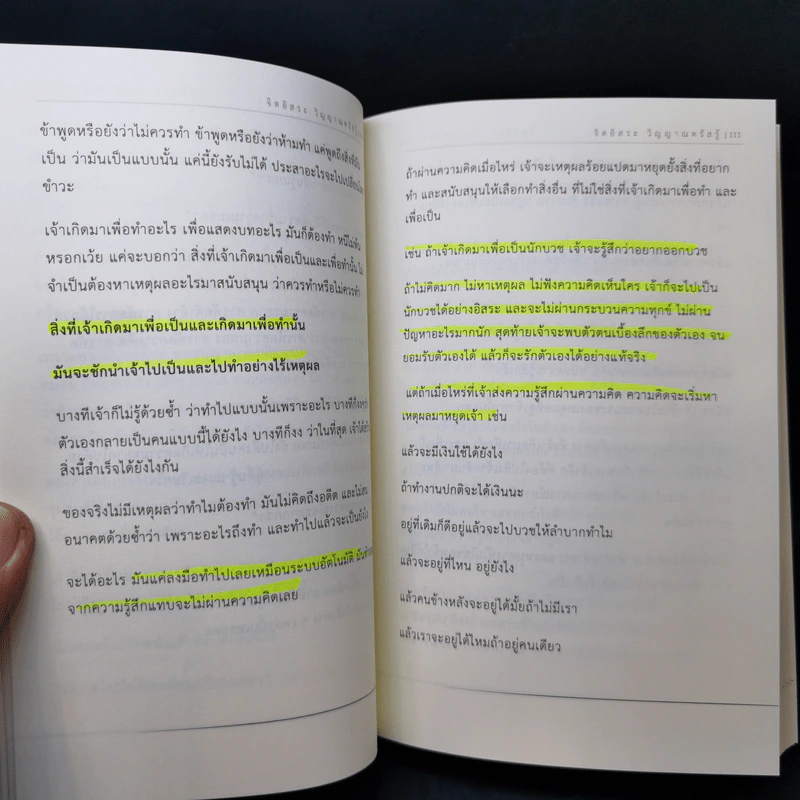 จิตอิสระ วิญญาณตรัสรู้
ข้าพูดหรือยังว่าไม่ควรทำ ข้าพูดหรือยังว่าห้ามทำ แค่พูดถึงสิ่งที่มัน
เป็น ว่ามันเป็นแบบนั้น แค่นี้ยังรับไม่ได้ ประสาอะไรจะไปเปลี่ยน
ข้าวะ
เจ้าเกิดมาเพื่อทำอะไร เพื่อแสดงบทอะไร มันก็ต้องทำ หนีไม่พ้น
หรอกเว้ย แค่จะบอกว่า สิ่งที่เจ้าเกิดมาเพื่อเป็นและเพื่อทำนั้น ไม่
จำเป็นต้องหาเหตุผลอะไรมาสนับสนุน ว่าควรทำหรือไม่ควรทำ
สิ่งที่เจ้าเกิดมาเพื่อเป็นและเกิดมาเพื่อทำนั้น
มันจะชักนำเจ้าไปเป็นและไปทำอย่างไร้เหตุผล
บางทีเจ้าก็ไม่รู้ด้วยซ้ำ ว่าทำไปแบบนั้นเพราะอะไร บางทีก็งงว่า
ตัวเองกลายเป็นคนแบบนี้ได้ยังไง บางทีก็งง ว่าในที่สุด เจ้าได้ทำ
สิ่งนี้สำเร็จได้ยังไงกัน
ของจริงไม่มีเหตุผลว่าทำไมต้องทำ มันไม่คิดถึงอดีต และไม่สน
อนาคตด้วยซ้ำว่า เพราะอะไรถึงทำ และทำไปแล้วจะเป็นยังไง
จะได้อะไร มันแค่ลงมือทำไปเลยเหมือนระบบอัตโนมัติ มัน
จากความรู้สึกแทบจะไม่ผ่านความคิดเลย
จิตอิสระ วิญญาณตรัสรู้ | 111
ถ้าผ่านความคิดเมื่อไหร่ เจ้าจะเหตุผลร้อยแปดมาหยุดยั้งสิ่งที่อยาก
ทำ และสนับสนุนให้เลือกทำสิ่งอื่น ที่ไม่ใช่สิ่งที่เจ้าเกิดมาเพื่อทำ และ
เพื่อเป็น
เช่น ถ้าเจ้าเกิดมาเพื่อเป็นนักบวช เจ้าจะรู้สึกว่าอยากออกบวช
ถ้าไม่คิดมาก ไม่หาเหตุผล ไม่ฟังความคิดเห็นใคร เจ้าก็จะไปเป็น
นักบวชได้อย่างอิสระ และจะไม่ผ่านกระบวนความทุกข์ ไม่ผ่าน
ปัญหาอะไรมากนัก สุดท้ายเจ้าจะพบตัวตนเบื้องลึกของตัวเอง จน
ยอมรับตัวเองได้ แล้วก็จะรักตัวเองได้อย่างแท้จริง
แต่ถ้าเมื่อไหร่ที่เจ้าส่งความรู้สึกผ่านความคิด ความคิดจะเริ่มหา
เหตุผลมาหยุดเจ้า เช่น
แล้วจะมีเงินใช้ได้ยังไง
ถ้าทำงานปกติจะได้เงินนะ
อยู่ที่เดิมก็ดีอยู่แล้วจะไปบวชให้ลำบากทำไม
แล้วจะอยู่ที่ไหน อยู่ยังไง
แล้วคนข้างหลังจะอยู่ได้มั้ยถ้าไม่มีเรา
แล้วเราจะอยู่ได้ไหมถ้าอยู่คนเดียว